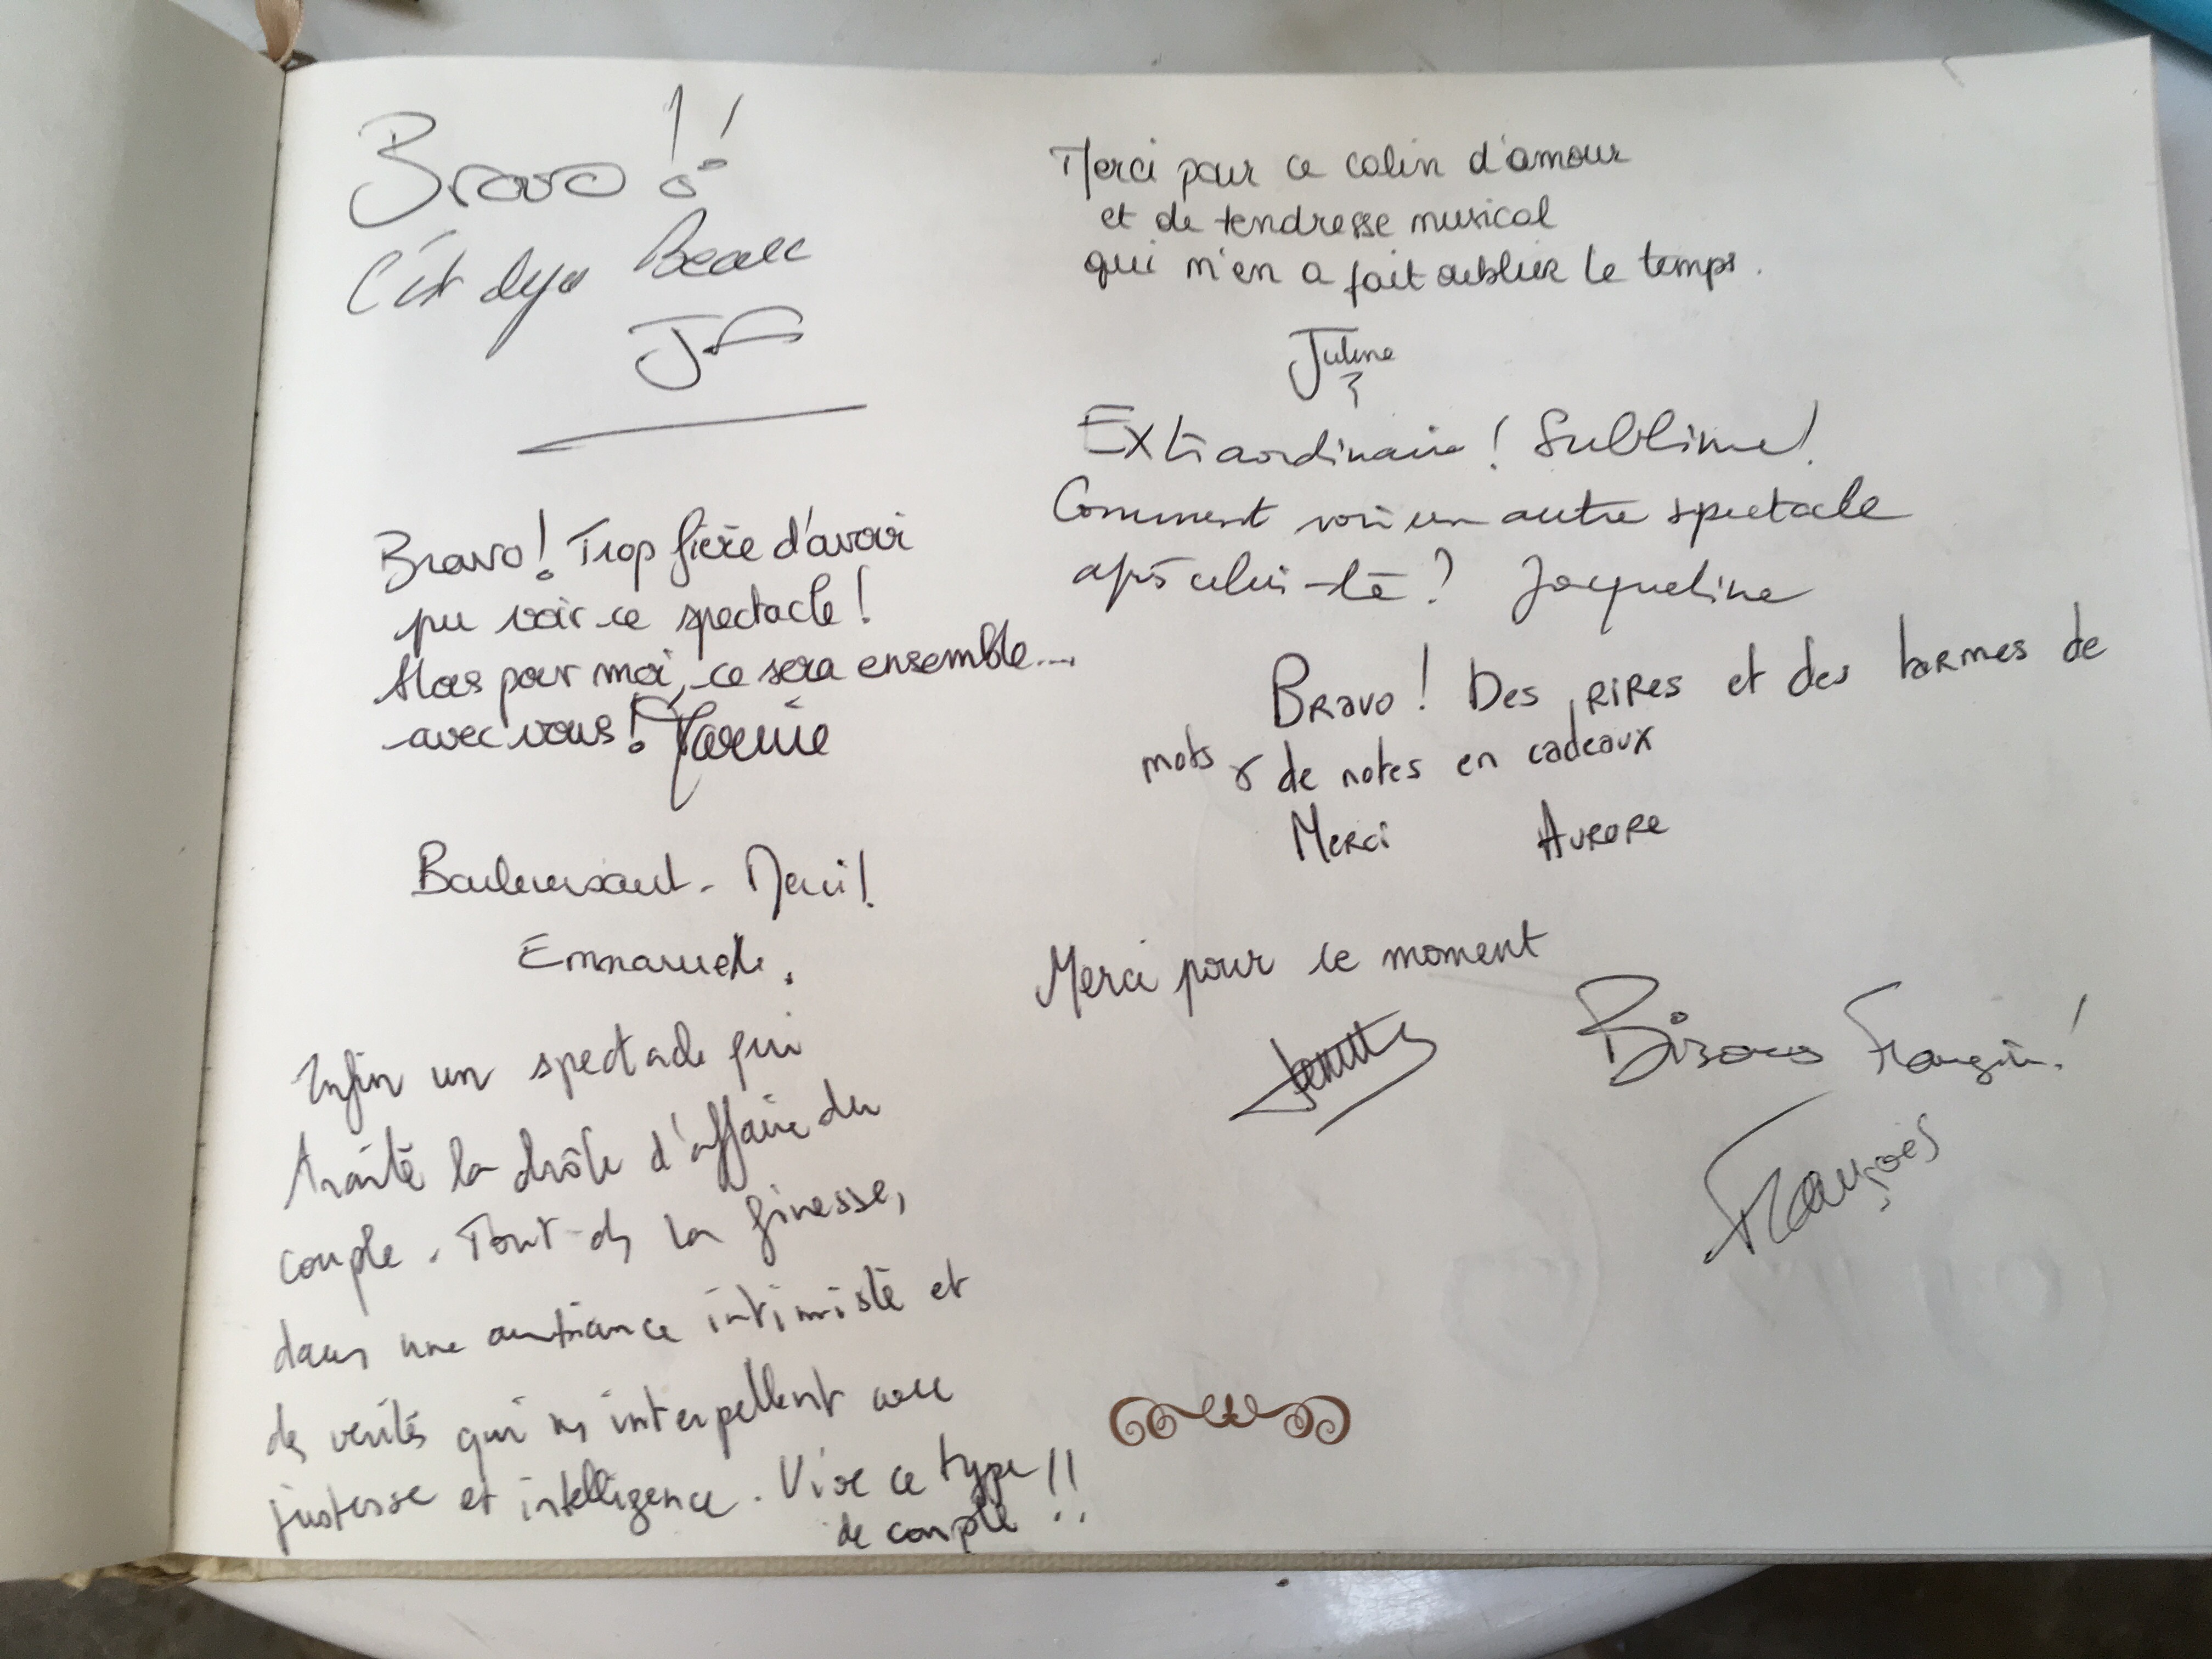 Bravo!
C'est dejà
JF
Bravo! Trop fière d'avoir
pu voir ce spectacle!
Mais pour moi, ce sera ensemble...
avec vous!
Bouleversant. Merci!
Emmanuelle.
Enfin un spectacle qui
traite la drôle d'affaire du
couple. Tout de la finesse,
dans une ambiance intimiste et
des vérités qui ns interpellent avec
justesse et intelligence. Vive ce type
de couple!!
Merci pour ce calin d'amour
et de tendresse musical
qui m'en a fait oublier le temps.
Juline
Extraordinaire! Sublime!
Comment voir un autre spectacle
après celui-là? Jacqueline
Bravo! Des rires et des larmes de
mots & de notes en cadeaux
Merci Aurore
Merci pour le moment
Bisous Frangin!
François